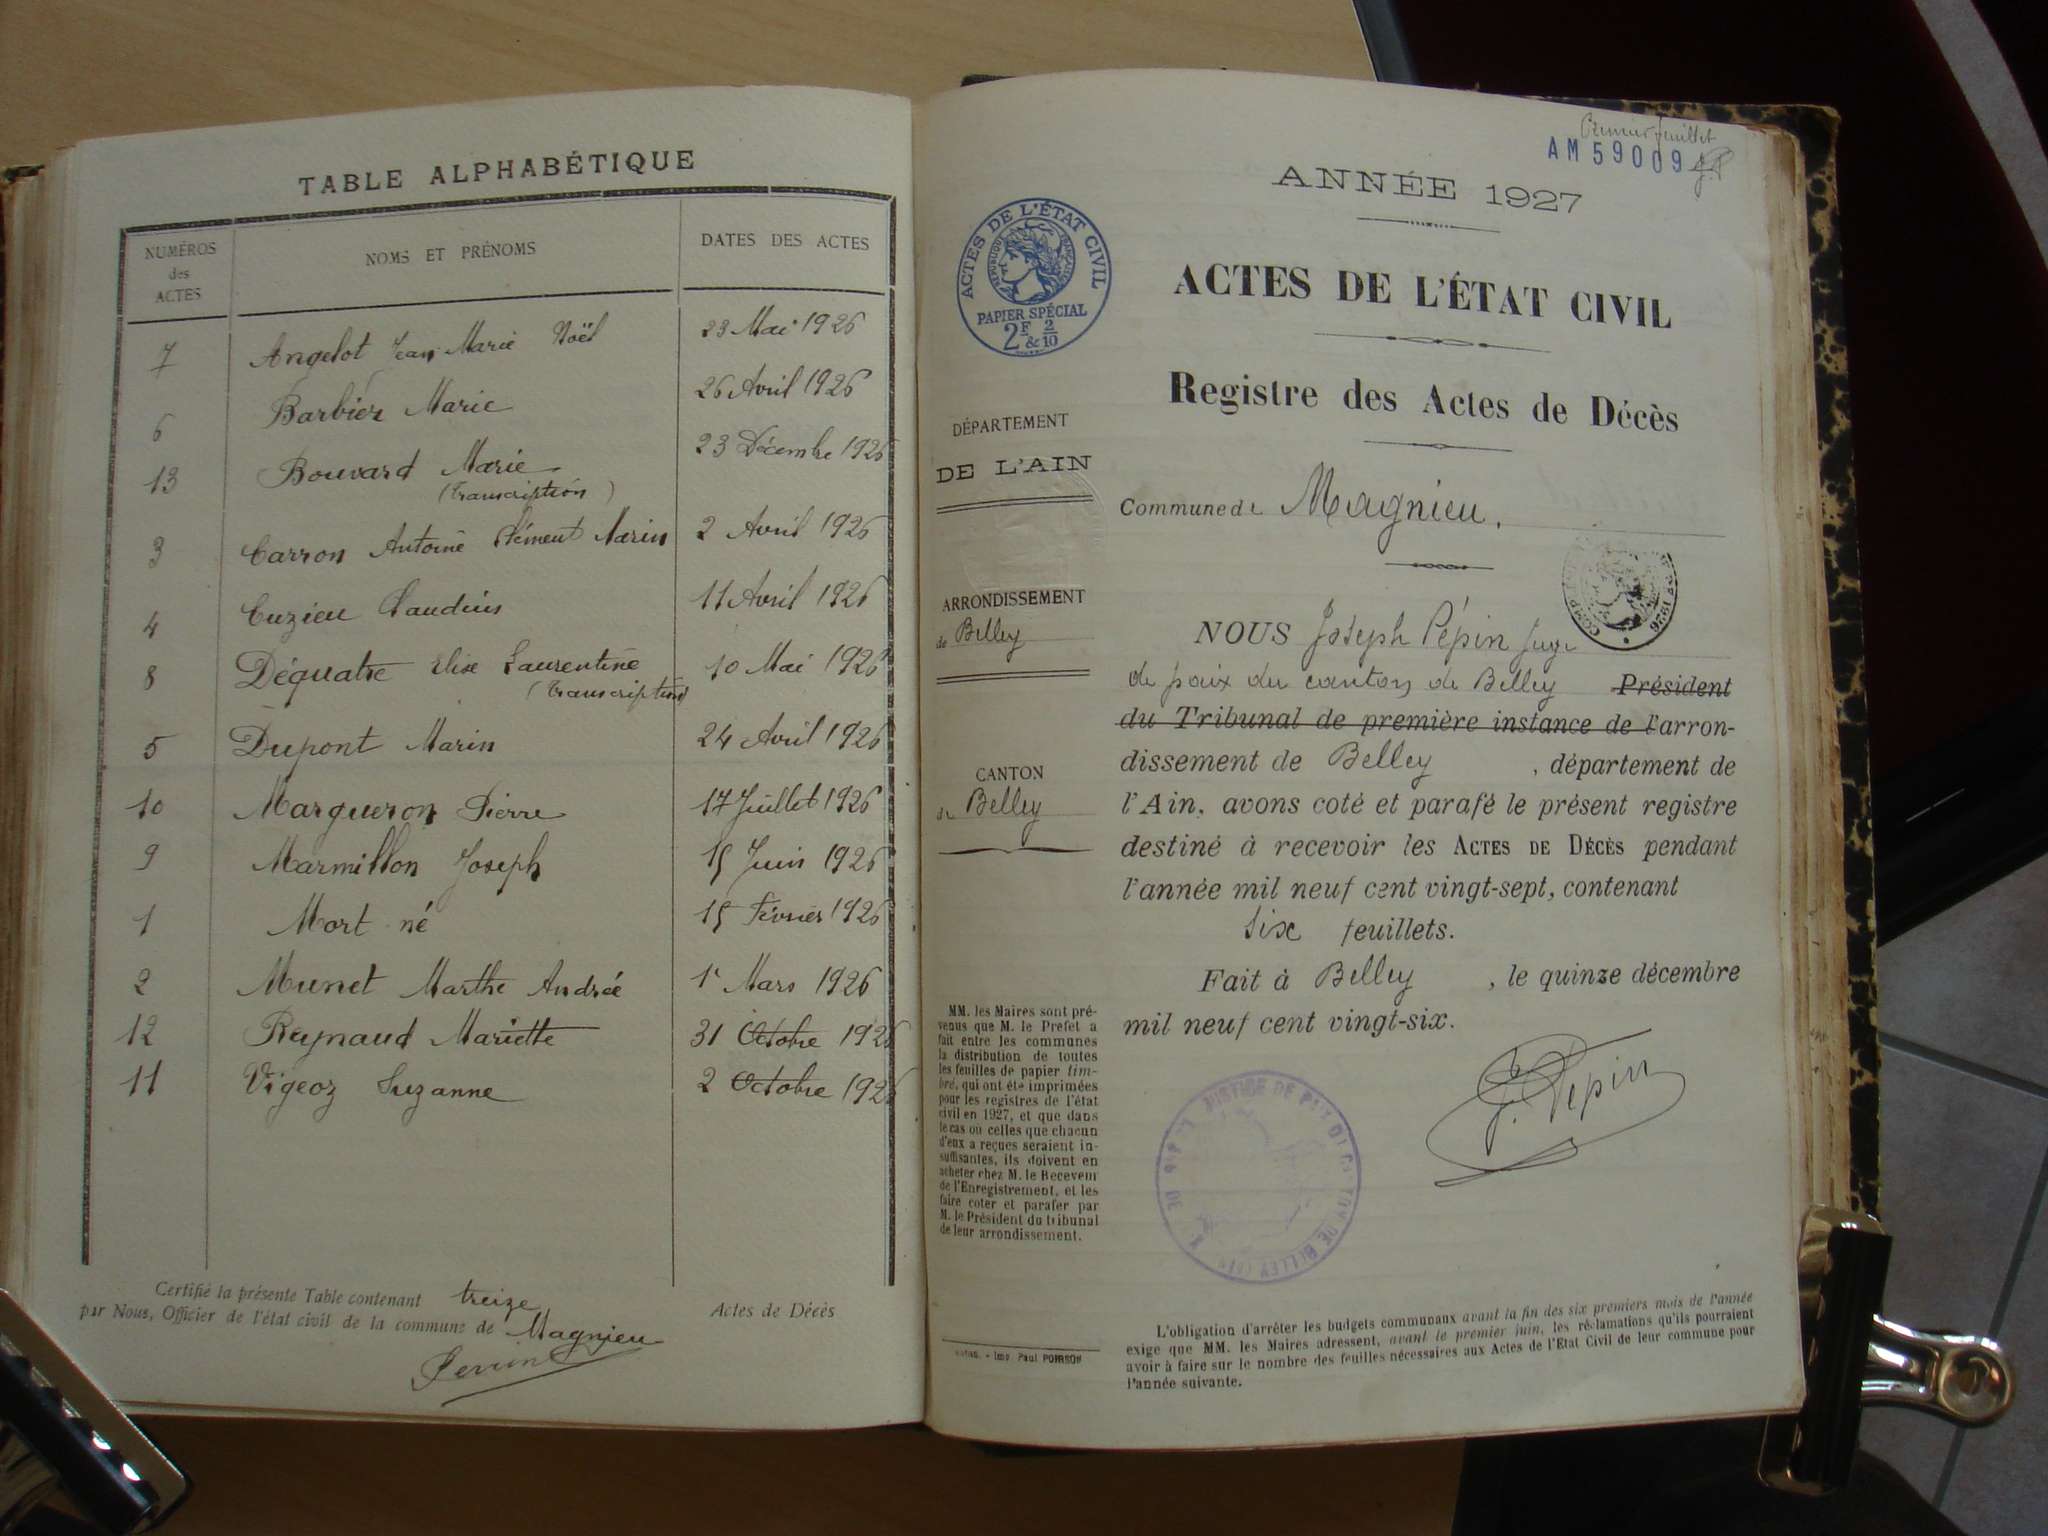 TABLE ALPHABÉTIQUE
NUMÉROS des ACTES NOMS ET PRÉNOMS DATES DES ACTES
7 Angelot Jean Marie Noël 23 Mai 1926
6 Barbier Marie 26 Avril 1926
13 Bouvard Marie 23 Décembre 1926
(Transcription)
3 Carron Antoine Clément Marin 2 Avril 1926
4 Cuzieu Claudius 11 Avril 1926
8 Déquatre Elise Laurentine 10 Mai 1926
(Transcription)
5 Dupont Marin 24 Avril 1926
10 Margueron Pierre 17 Juillet 1926
9 Marmillon Joseph 15 Juin 1926
1 Mort né 15 Février 1926
2 Munet Marthe Andrée 1r Mars 1926
12 Reynaud Mariette 31 Octobre 1926
11 Vigeoz Suzanne 2 Octobre 1926
Certifié la présente Table contenant treize Actes de Décès
par Nous, Officier de l'état civil de la commune de Magnieu
Perrin
Premier feuillet
AM 59009 J.P
ANNÉE 1927
ACTES DE L'ÉTAT CIVIL
RÉPUBLIQUE FRANÇAISE
PAPIER SPÉCIAL
2F & 2/10
ACTES DE L'ÉTAT CIVIL
Registre des Actes de Décès
DÉPARTEMENT
DE L'AIN
Commune de Magnieu.
ARRONDISSEMENT
de Belley
CANTON
de Belley
NOUS Joseph Pépin Juge
de paix du canton de Belley Président
du Tribunal de première instance de l'arron-
dissement de Belley, département de
l'Ain, avons coté et parafé le présent registre
destiné à recevoir les ACTES DE DÉCÈS pendant
l'année mil neuf cent vingt-sept, contenant
six feuillets.
Fait à Belley, le quinze décembre
mil neuf cent vingt-six.
J. Pépin
MM. les Maires sont pré-
venus que M. le Préfet a
fait entre les communes
la distribution de toutes
les feuilles de papier tim-
bré, qui ont été imprimées
pour les registres de l'état
civil en 1927, et que dans
le cas où celles que chacun
d'eux a reçues seraient in-
suffisantes, ils doivent en
acheter chez M. le Receveur
de l'Enregistrement, et les
faire coter et parafer par
M. le Président du tribunal
de leur arrondissement.
Imp. Paul POIRSON
L'obligation d'arrêter les budgets communaux avant la fin des six premiers mois de l'année
exige que MM. les Maires adressent, avant le premier juin, les réclamations qu'ils pourraient
avoir à faire sur le nombre des feuilles nécessaires aux Actes de l'État Civil de leur commune pour
l'année suivante.